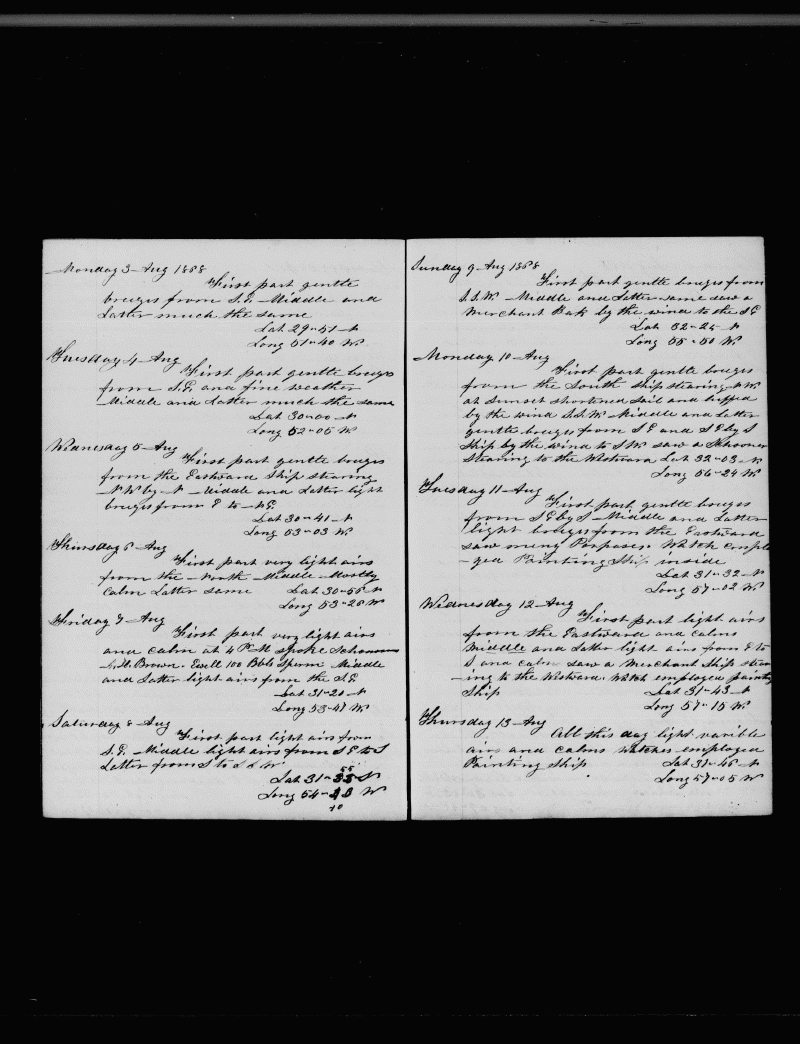 Monday 3 Aug 1868
First part gentle
breezes from S.E. Middle and
Latter much the same
Lat 29-51 N
Long 51-40 W
Tuesday 4 Aug
First part gentle breezes
from S.E. and fine weather
Middle and Latter much the same
Lat 30-00 N
Long 52-05 W
Wednesday 5 Aug
First part gentle breezes
from the Eastward Ship stearing
NW by N Middle and Latter light
breezes from E to NE
Lat 30-41 N
Long 53-03 W
Thursday 6 Aug
First part very light airs
from the North Middle Mostly
Calm Latter same Lat 30-56 N
Long 53-26 W
Friday 7 Aug
First part very light airs
and calm at 4 PM spoke Schooner
Brown. Ewell 100 Bbls Sperm Middle
and Latter light airs from the S.E.
Lat 31-20 N
Long 53-47 W
Saturday 8 Aug
First part light airs from
S.E. Middle light airs from SE to S
Latter from S to SSW
55
Lat 31-35 N
Long 54- W
10
Sunday 9 Aug 1868
First part gentle breezes from
S.S.W. Middle and Latter same saw a
Merchant Bark by the wind to the SE
Lat 32-24 N
Long 55-50 W
Monday 10 Aug
First part gentle breezes
from the South Ship stearing NW
at Sunset shortened Sail and luffed
by the wind S.S.W. Middle and Latter
gentle breezes from SE and SE by S
Ship by the wind to SW saw a Schooner
stearing to the Westward Lat 32-03 N
Long 56-24 W
Tuesday 11 Aug
First part gentle breezes
from SE by S Middle and Latter
light breezes from the Eastward
saw meny Porpases. Watch emplo
-yed Painting Ship inside
Lat 31-32 N
Long 57-02 W
Wednesday 12 Aug
First part light airs
from the Eastward and calms
Middle and Latter light airs from E to
S and calm saw a Merchant Ship stear
-ing to the Westward. Watch employed painting
Ship Lat 31-43 N
Long 57-15 W
Thursday 13 Aug
All this day light varible
airs and calms Watches employed
Painting Ship Lat 31-46 N
Long 57-05 W